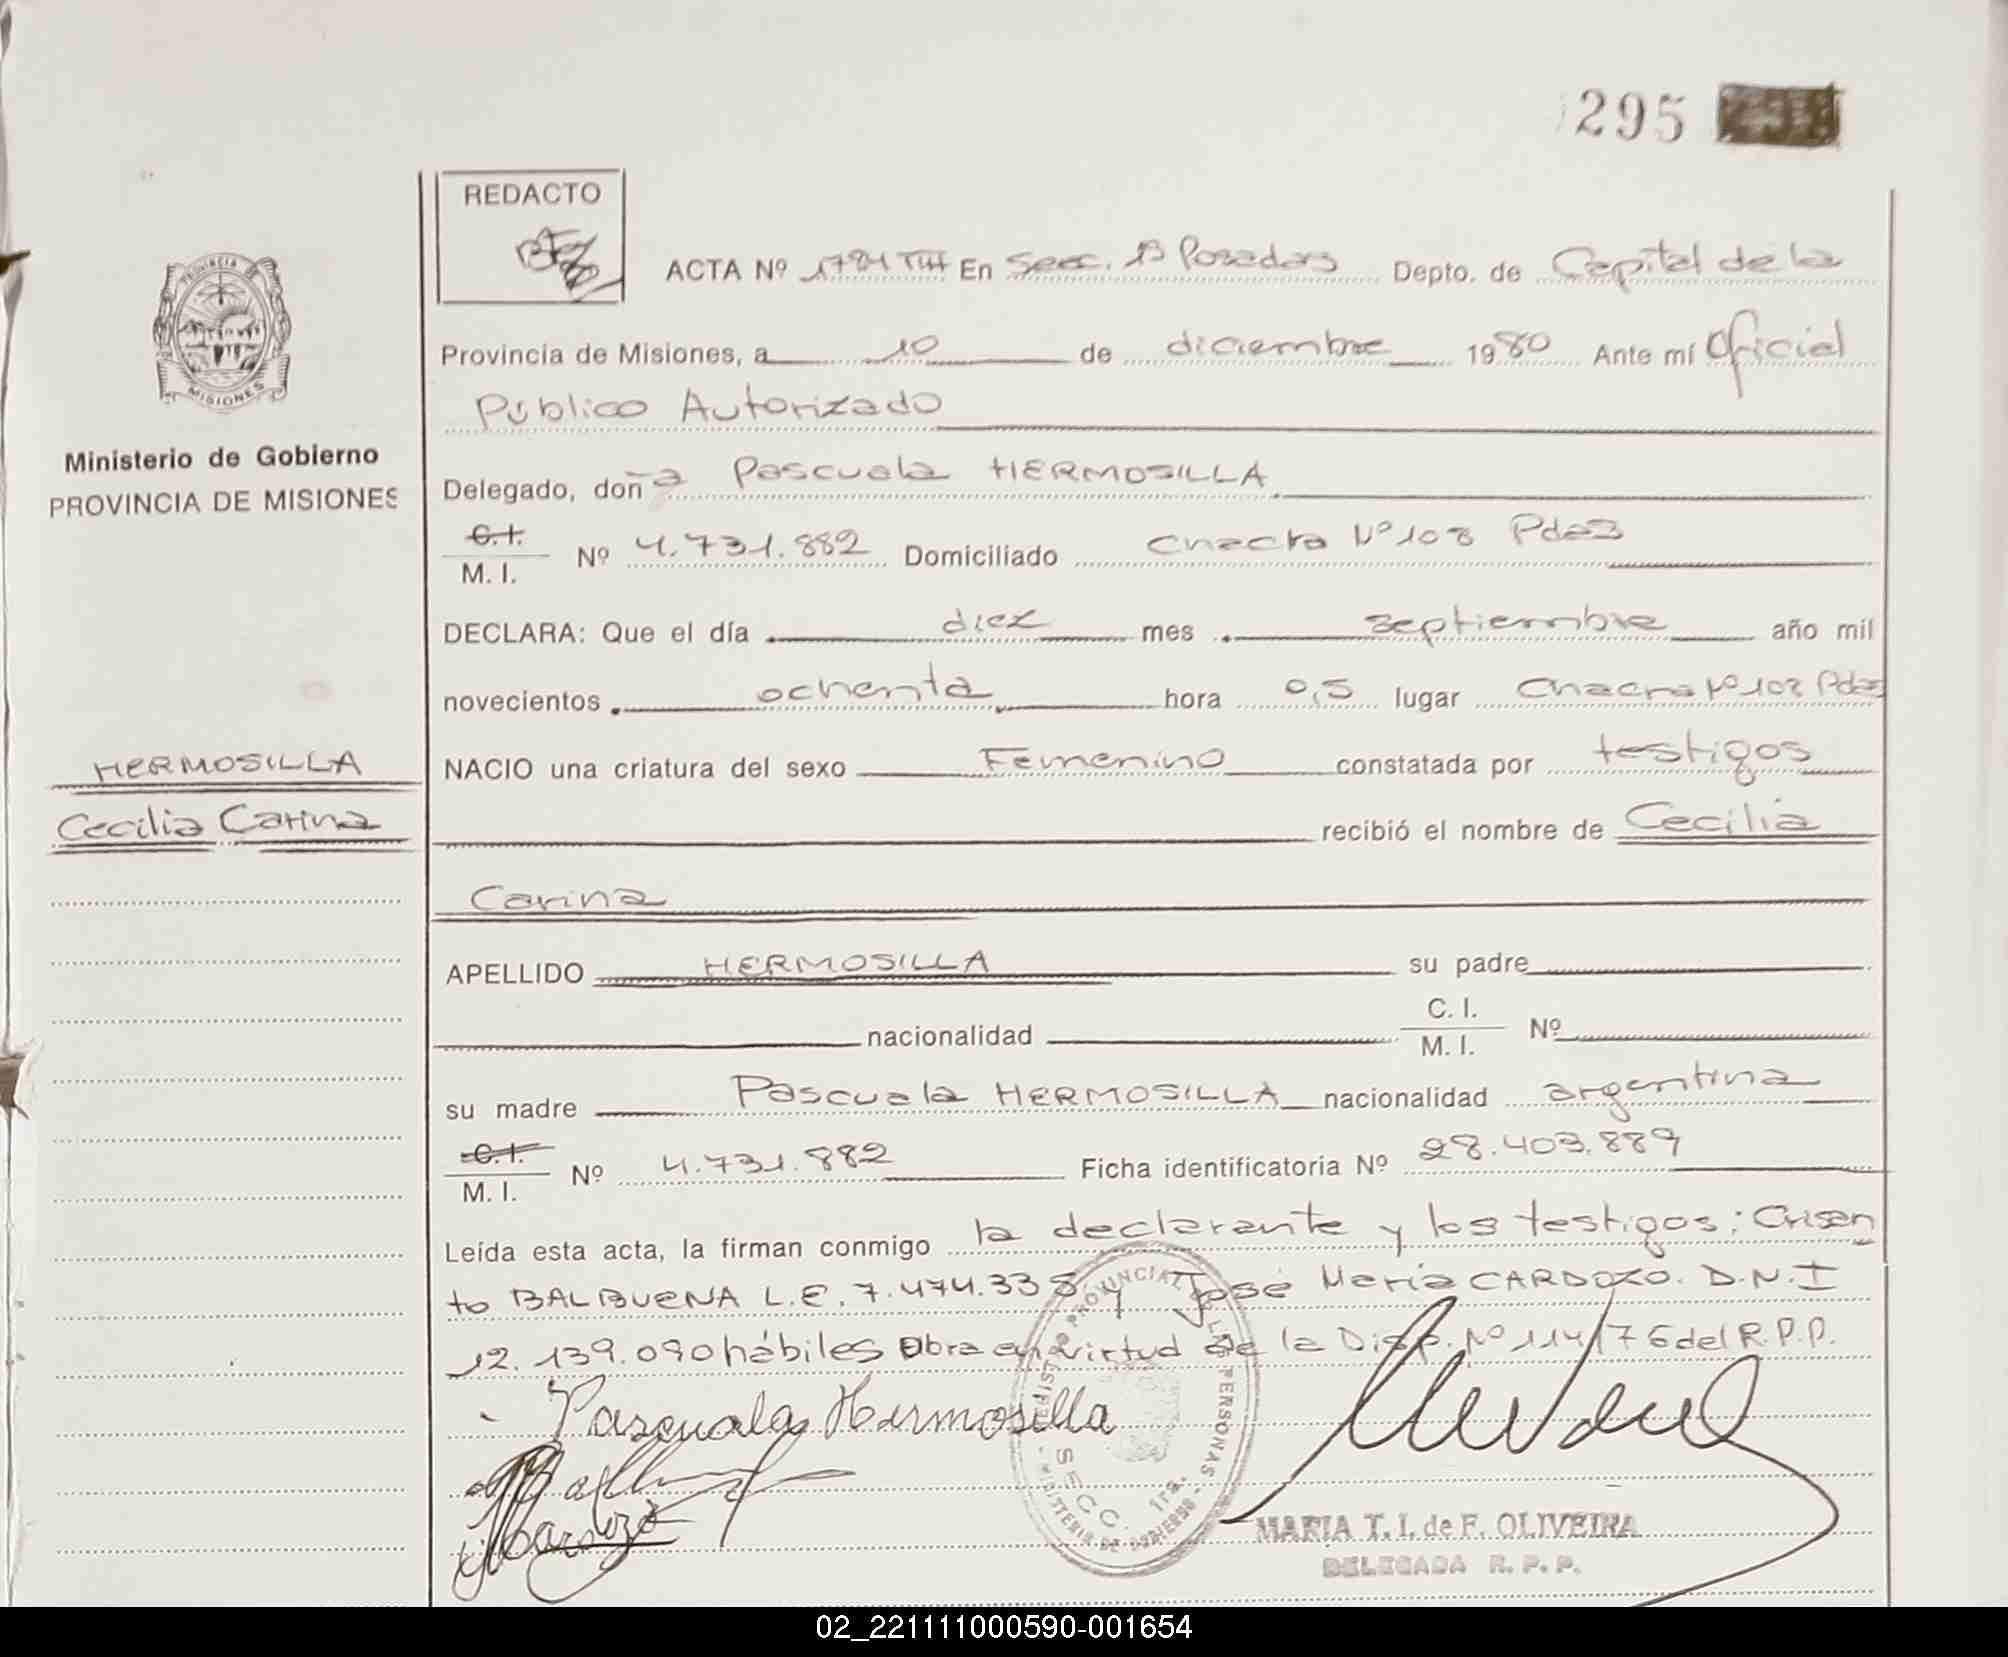 295
REDACTO
ACTA Nº 1781 TIII En Secc. 1ª Posadas Depto. de Capital de la
Provincia de Misiones, a 10 de diciembre 1980 Ante mí Oficial
Público Autorizado
Ministerio de Gobierno
PROVINCIA DE MISIONES
Delegado, doña Pascuala HERMOSILLA
C.I. M. I. Nº 4.731.882 Domiciliado Chacra Nº 103 Pdas
DECLARA: Que el día diez mes septiembre año mil
novecientos ochenta hora 0,5 lugar Chacra Nº 103 Pdas
HERMOSILLA
NACIO una criatura del sexo Femenino constatada por testigos
Cecilia Carina
recibió el nombre de Cecilia
Carina
APELLIDO HERMOSILLA su padre
nacionalidad C. I. M. I. Nº
su madre Pascuala HERMOSILLA nacionalidad argentina
C.I. M. I. Nº 4.731.882 Ficha identificatoria Nº 28.403.889
Leída esta acta, la firman conmigo la declarante y los testigos: Crisen
to BALBUENA L.E. 7.474.335 y José María CARDOZO. D.N.I
12.139.090 hábiles Obra en virtud de la Disp. Nº 114/76 del R.P.P.
Pascuala Hermosilla
REGISTRO PROVINCIAL DE LAS PERSONAS
SECC. 1ra.
MINISTERIO DE GOBIERNO
MARIA T. I. de F. OLIVEIRA
DELEGADA R. P. P.
02_221111000590-001654